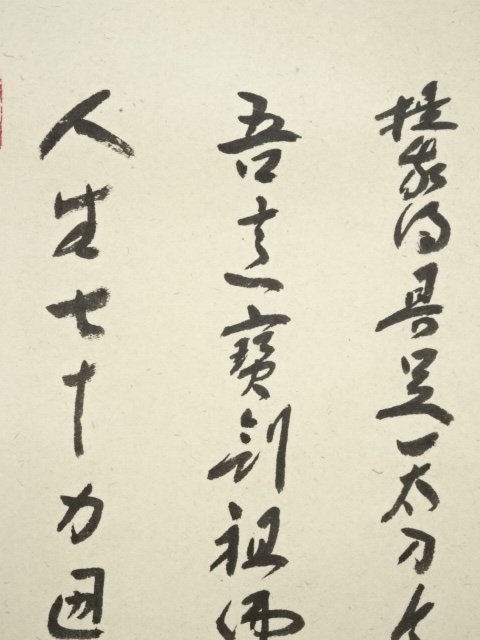 人生七十力囲
吾這寶剣祖佛
提我得具足一太刀今